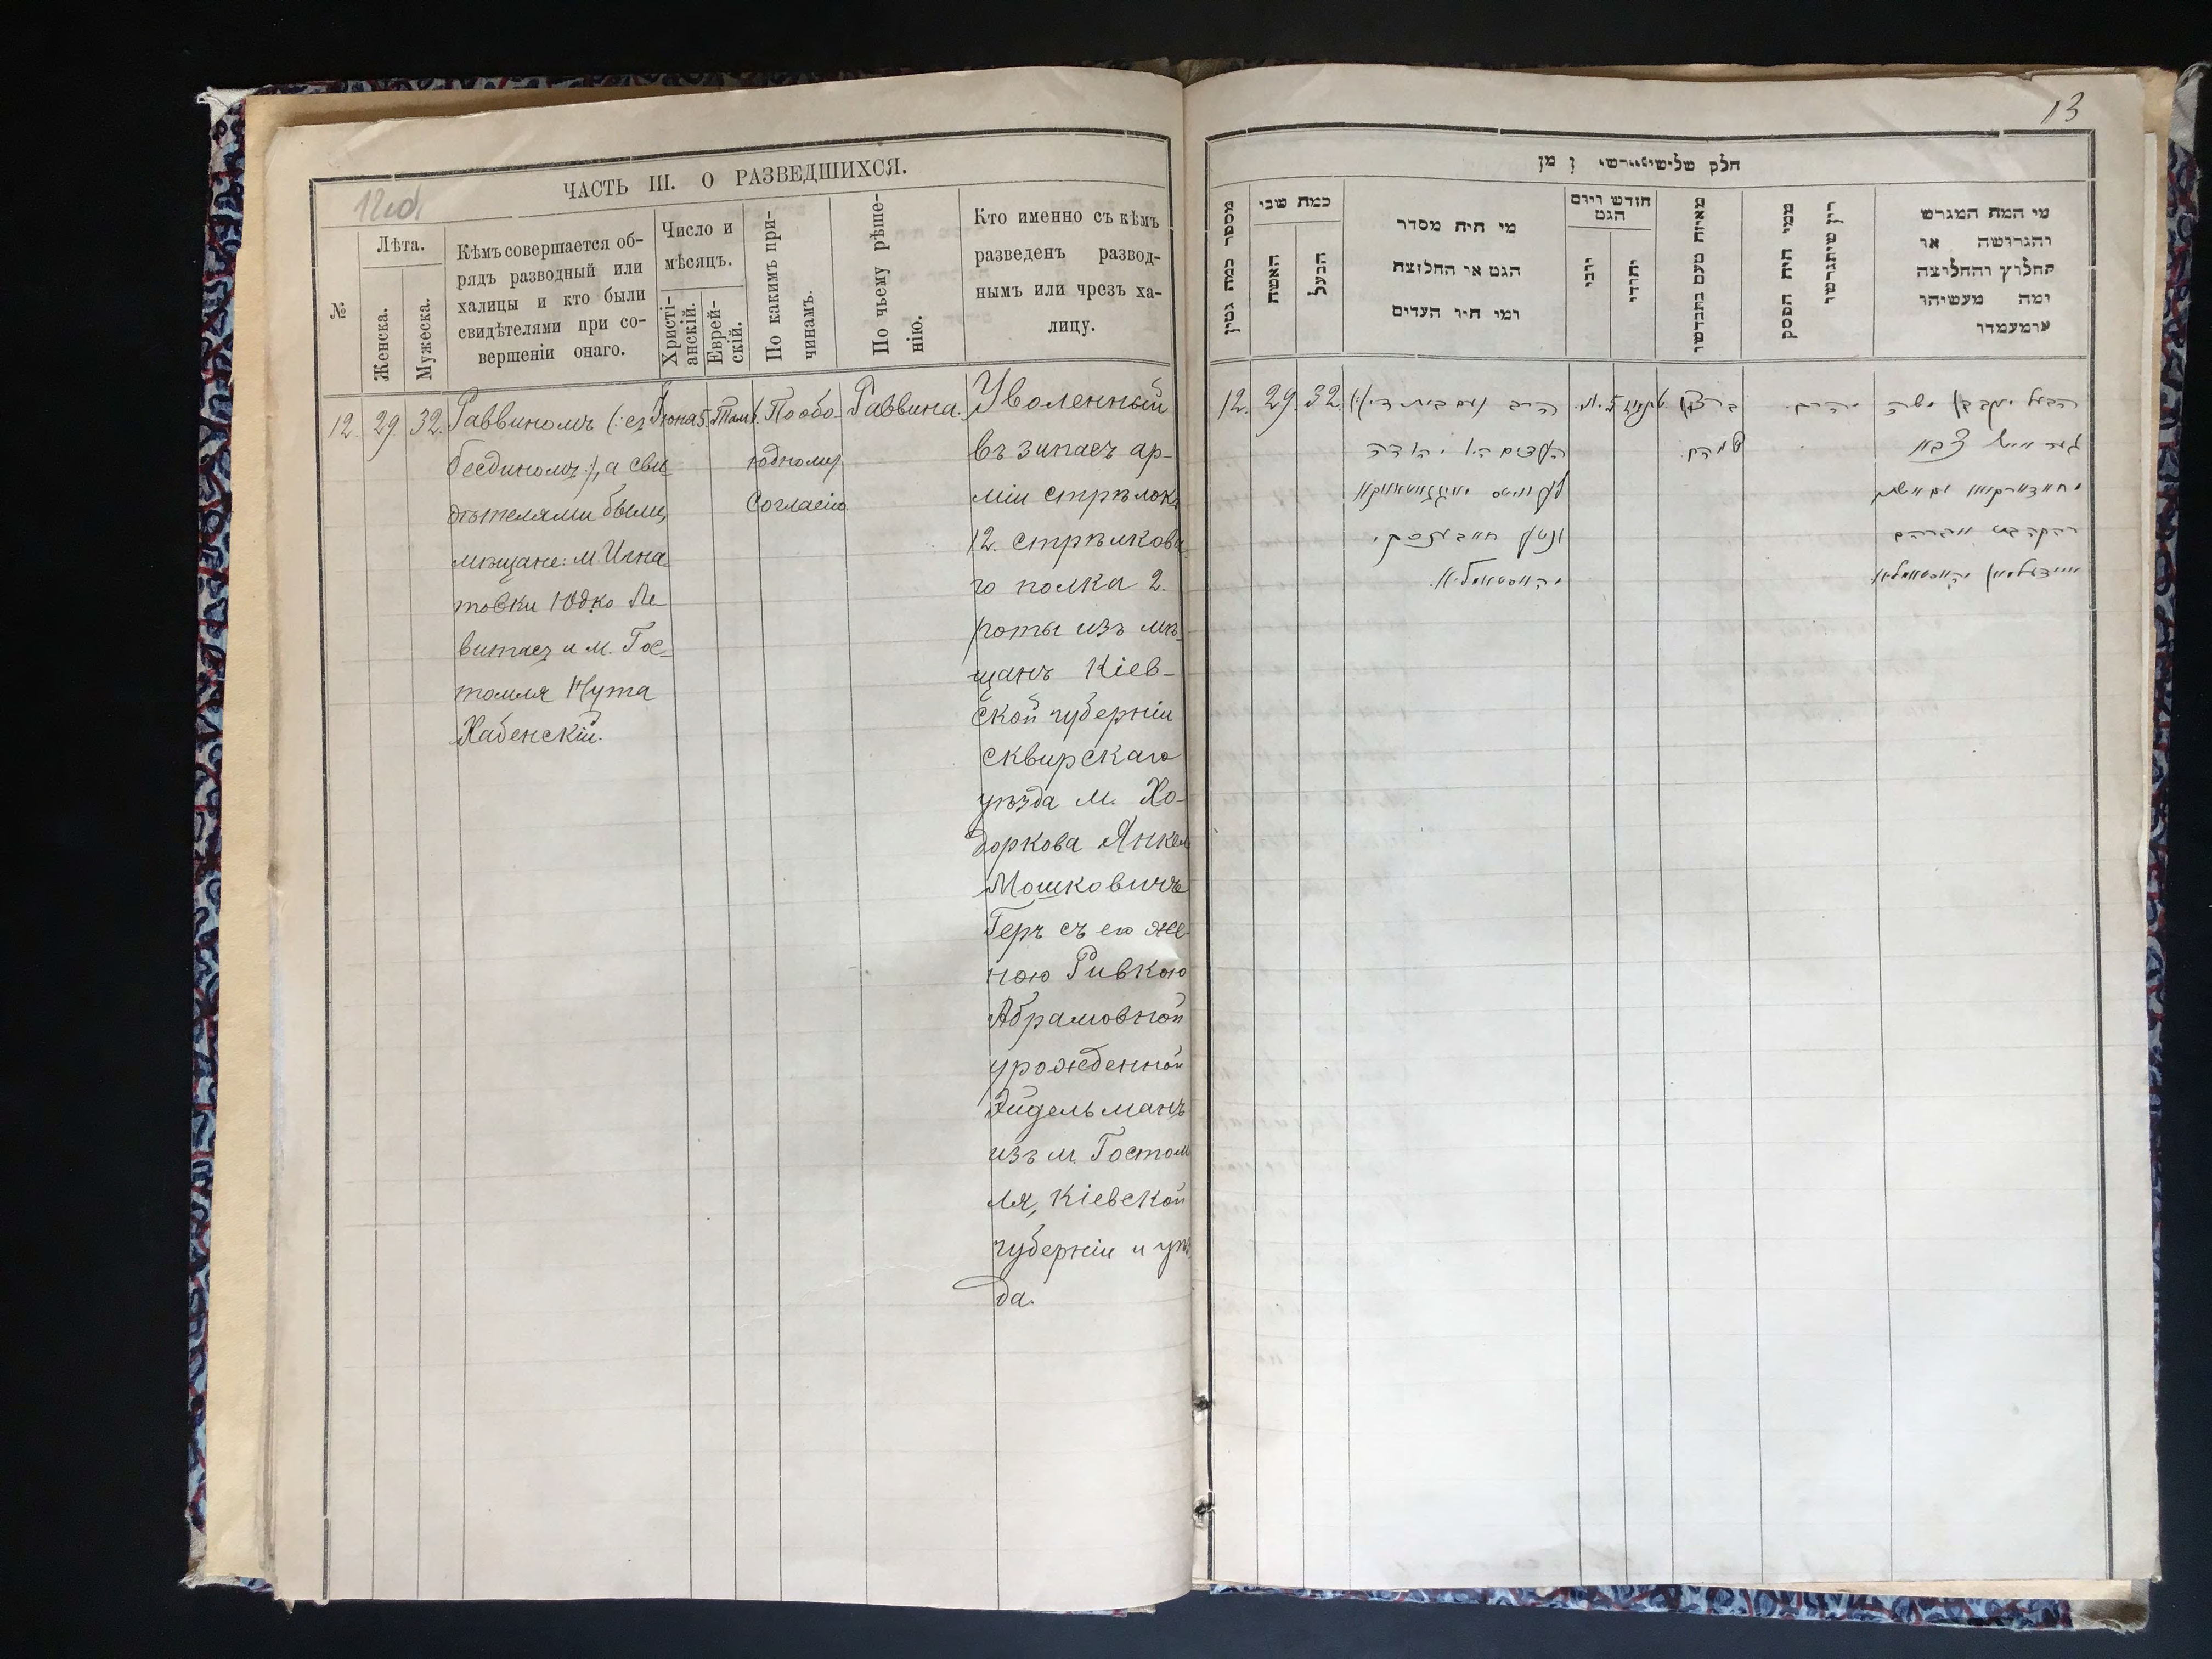 12 об.
ЧАСТЬ III. О РАЗВЕДШИХСЯ.
№
Лѣта.
Женска.
Мужеска.
Кѣмъ совершается об-
рядъ разводный или
халицы и кто были
свидѣтелями при со-
вершеніи онаго.
Число и
мѣсяцъ.
Христі-
анскій.
Еврей-
скій.
По какимъ при-
чинамъ.
По чьему рѣше-
нію.
Кто именно съ кѣмъ
разведенъ развод-
нымъ или чрезъ ха-
лицу.
12.
29.
32.
Раввиномъ (:съ
бесдиномъ:), а сви-
дѣтелями были,
мѣщане: м. Игна-
товки Юдко Ле-
витасъ и м. Гос-
томля Нута
Хабенскій.
Іюна 5.
Там.
По обо-
юдному
согласію.
Раввина.
Уволенный
въ запасъ ар-
міи стрѣлокъ
12. стрѣлкова-
го полка 2.
роты изъ мѣ-
щанъ Кіев-
ской губерніи
сквирскаго
уѣзда м. Хо-
доркова Янкель
Мошковичъ
Геръ съ его же-
ною Ривкою
Абрамовной
урожденной
Эйдельманъ
изъ м. Гостом
ля, Кіевской
губерніи и уѣз
да.
13
חלק שלישי
מן
מספר כמה גטין
כמה שני
האשה
הבעל
מי היה מסדר
הגט או החלוצה
ומי היו העדים
חודש ויום
הגט
יהודי
מי המה המגרש
והגרושה או
החלוץ והחליצה
ומה מעשיהו
ומעמדו
12.
29.
32.
הרב
העדים היו יהודה
ברצון
שניהם
הבעל יעקב בן משה
גער איש צבא
רבקה בת אברהם